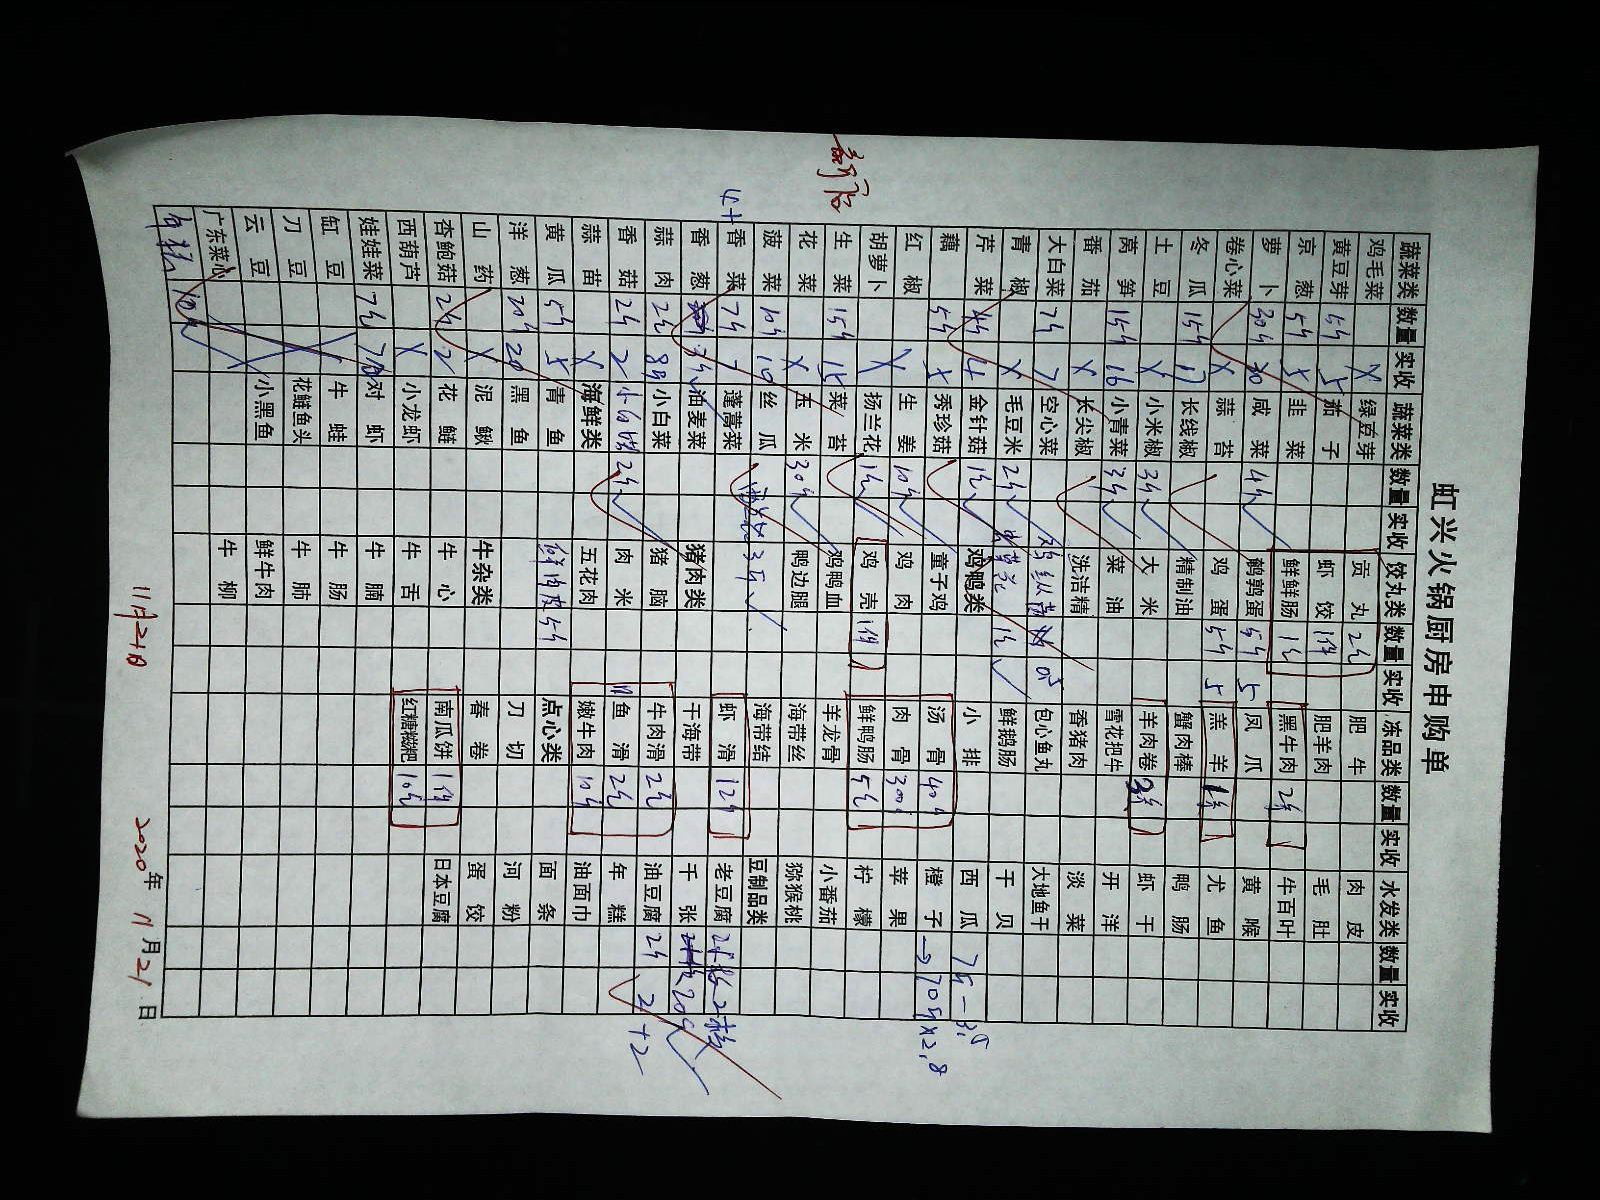 虹兴火锅厨房申购单
新店
蔬菜类 数量 实收 蔬菜类 数量 实收 饺丸类 数量 实收 冻品类 数量 实收 水发类 数量 实收
鸡毛菜 X 绿豆芽 贡丸 2包 肥牛 肉皮
黄豆芽 5斤 5 茄子 虾饺 1件 肥羊肉 毛肚
京葱 5斤 X 韭菜 鲜鲜肠 1包 黑牛肉 2条 牛百叶
萝卜 30斤 30 咸菜 4包 鹌鹑蛋 5斤 5 凤爪 黄喉
卷心菜 X 蒜苔 鸡蛋 5斤 5 羔羊 1条 尤鱼
冬瓜 15斤 17 长线椒 精制油 蟹肉棒 鸭肠
土豆 X 小米椒 3斤 大米 羊肉卷 3条 虾干
莴笋 15斤 16 小青菜 3斤 菜油 雪花把牛 开洋
番茄 X 长尖椒 洗洁精 香猪肉 淡菜
大白菜 7斤 7 空心菜 包心鱼丸 大地鱼干
青椒 X 毛豆米 2斤 1包 鲜鹅肠 干贝
芹菜 4斤 4 金针菇 1包 鸡鸭类 小排 西瓜 75-3.5
藕 5斤 X 秀珍菇 童子鸡 汤骨 40斤 橙子 →70斤×2.8
红椒 X 生姜 10斤 鸡肉 肉骨 300斤 苹果
胡萝卜 X 扬兰花 1包 鸡壳 1件 鲜鸭肠 5包 柠檬
生菜 15斤 15 菜苔 鸡鸭血 羊龙骨 小番茄
花菜 X 玉米 30斤 鸭边腿 海带丝 猕猴桃
菠菜 10斤 10 丝瓜 3斤 海带结 豆制品类
4+ 香菜 7斤 7 蓬蒿菜 虾滑 12斤 老豆腐
香葱 3斤 油麦菜 猪肉类 干海带 千张 20斤
蒜肉 2斤 8斤 小白菜 猪脑 牛肉滑 2包 油豆腐 2斤 2+2
香菇 2斤 2 2斤 肉米 鱼滑 2包 年糕
蒜苗 X 海鲜类 五花肉 嫩牛肉 10斤 油面巾
黄瓜 5斤 5 青鱼 鲜肉皮 5斤 点心类 面条
洋葱 20斤 20 黑鱼 刀切 河粉
山药 X 泥鳅 牛杂类 春卷 蛋饺
杏鲍菇 2斤 2 花鲢 牛心 南瓜饼 1件 日本豆腐
西葫芦 X 小龙虾 牛舌 红糖糍粑 10包
娃娃菜 7包 7包 对虾 牛腩
缸豆 牛蛙 牛肠
刀豆 花鲢鱼头 牛肺
云豆 小黑鱼 鲜牛肉
广东菜心 牛柳
年糕 10斤
11月21日 2020年 11月 21日